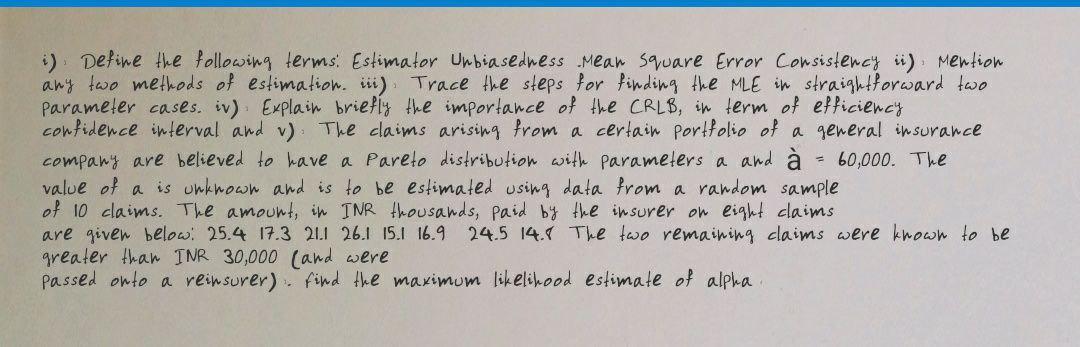 i). Define the following terms: Estimator Unbiasedness .Mean Square Error Consistency ii). Mention
any two methods of estimation. iii). Trace the steps for finding the MLE in straightforward two
parameter cases. iv). Explain briefly the importance of the CRLB, in term of efficiency
confidence interval and v). The claims arising from a certain portfolio of a general insurance
company are believed to have a Pareto distribution with parameters a and à = 60,000. The
value of a is unknown and is to be estimated using data from a random sample
of 10 claims. The amount, in INR thousands, paid by the insurer on eight claims
are given below: 25.4 17.3 21.1 26.1 15.1 16.9 24.5 14.8 The two remaining claims were known to be
greater than INR 30,000 (and were
passed onto a reinsurer). find the maximum likelihood estimate of alpha.